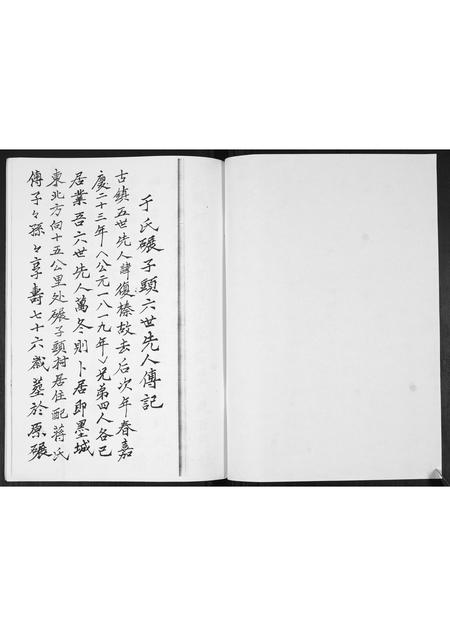 于氏碾子頭六世先人傳記
古鎮五世先人諱復榛故去后次年春嘉
慶二十三年（公元一八一九年）兄弟四人各已
居業吾六世先人萬冬則卜居即墨城
東北方向十五公里处碾子頭村居住配蔣氏
傳子々孫々享壽七十六歲葬於原碾